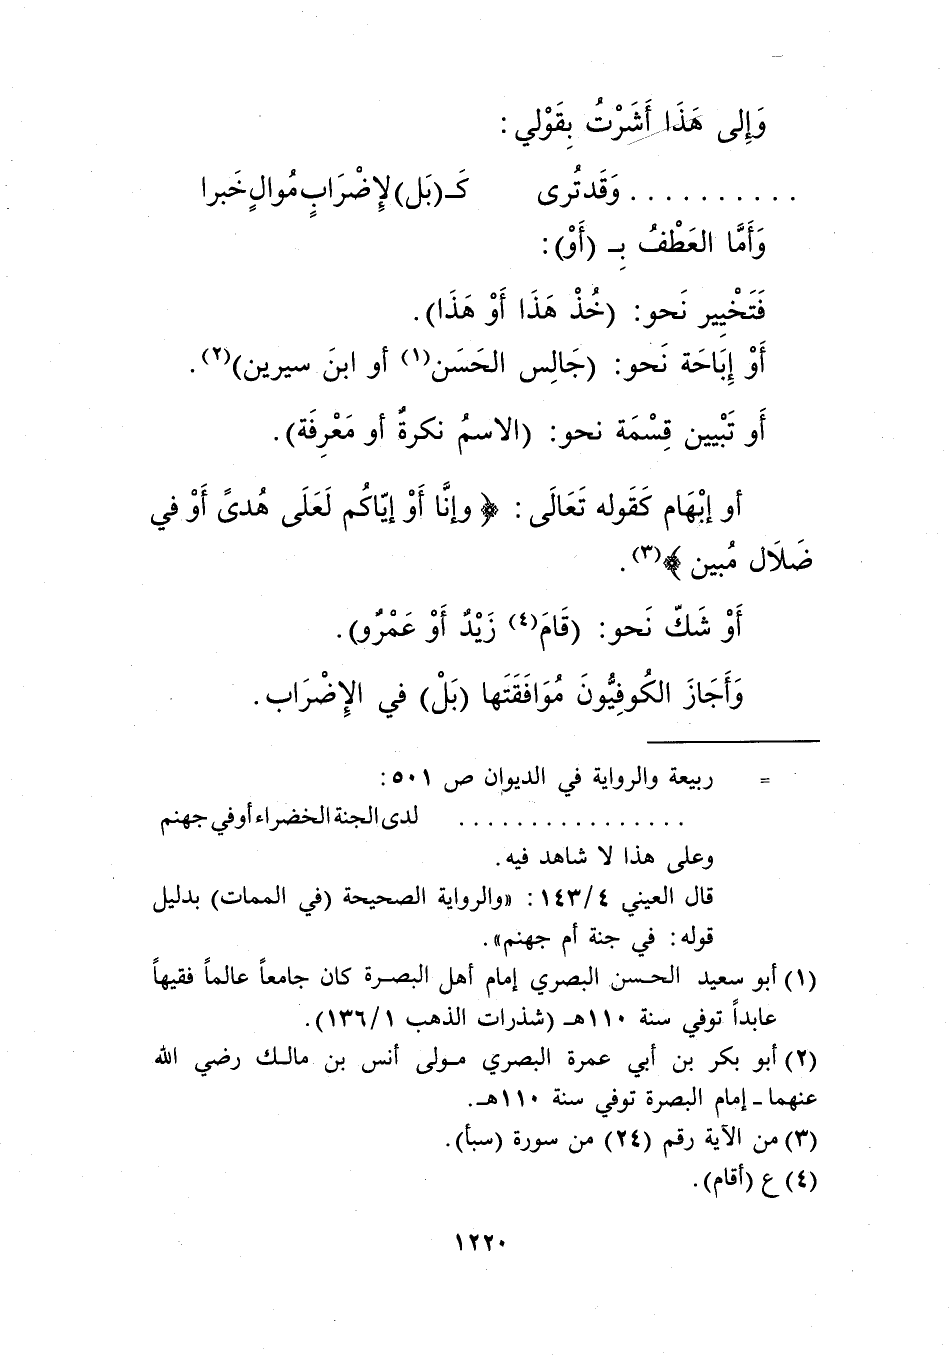 وَإِلى هَذَا أَشَرْتُ بِقَوْلي :
. . . . . . . . . . وَقَد تُرى كَـ (بَل) لإِضْرَابٍ مُوالٍ خَبرا
وَأَمَّا العَطْفُ بِـ (أَوْ):
فَتَخْيِير نَحو: (خُذْ هَذَا أَوْ هَذَا).
أَوْ إِبَاحَة نَحو: (جَالِس الحَسَن(١) أو ابنَ سيرين)(٢).
أَو تَبْيين قِسْمَة نحو: (الاسمُ نكرةٌ أو مَعْرِفَة).
أو إبْهَام كَقَوله تَعَالَى : ﴿ وإنَّا أَوْ إيّاكُم لَعَلَى هُدىً أَوْ في
ضَلَال مُبين ﴾(٣).
أَوْ شَكّ نَحو: (قَامَ(٤) زَيْدٌ أَوْ عَمْرٌو).
وَأَجَازَ الكُوفِيُّونَ مُوَافَقَتَها (بَلْ) في الإِضْرَاب.
= ربيعة والرواية في الديوان ص ٥٠١:
. . . . . . . . . . . . . . . . لدى الجنة الخضراء أو في جهنم
وعلى هذا لا شاهد فيه.
قال العيني ١٤٣/٤ : «والرواية الصحيحة (في الممات) بدليل
قوله: في جنة أم جهنم».
(١) أبو سعيد الحسن البصري إمام أهل البصرة كان جامعاً عالماً فقيهاً
عابداً توفي سنة ١١٠هـ (شذرات الذهب ١٣٦/١).
(٢) أبو بكر بن أبي عمرة البصري مولى أنس بن مالك رضي الله
عنهما - إمام البصرة توفي سنة ١١٠هـ.
(٣) من الآية رقم (٢٤) من سورة (سبأ).
(٤) ع (أقام).
١٢٢٠